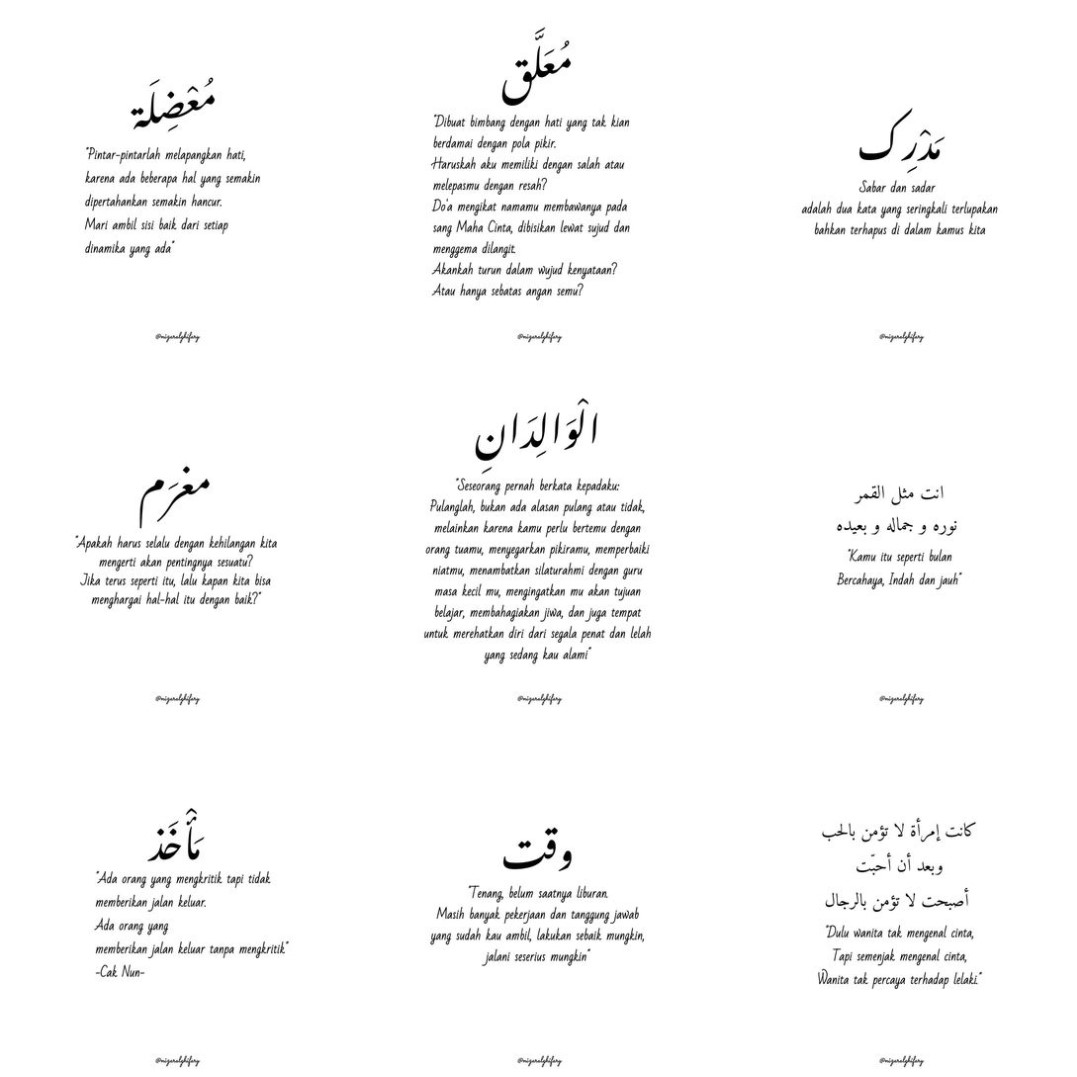 مُعْضِلَة
"Pintar-pintarlah melapangkan hati,
karena ada beberapa hal yang semakin
dipertahankan semakin hancur.
Mari ambil sisi baik dari setiap
dinamika yang ada"
@nizaralghifary
مُعَلَّق
"Dibuat bimbang dengan hati yang tak kian
berdamai dengan pola pikir.
Haruskah aku memiliki dengan salah atau
melepasmu dengan resah?
Do'a mengikat namamu membawanya pada
sang Maha Cinta, dibisikan lewat sujud dan
menggema dilangit.
Akankah turun dalam wujud kenyataan?
Atau hanya sebatas angan semu?
@nizaralghifary
مَدْرِك
Sabar dan sadar
adalah dua kata yang seringkali terlupakan
bahkan terhapus di dalam kamus kita
@nizaralghifary
مغرَم
"Apakah harus selalu dengan kehilangan kita
mengerti akan pentingnya sesuatu?
Jika terus seperti itu, lalu kapan kita bisa
menghargai hal-hal itu dengan baik?"
@nizaralghifary
الْوَالِدَانِ
"Seseorang pernah berkata kepadaku:
Pulanglah, bukan ada alasan pulang atau tidak,
melainkan karena kamu perlu bertemu dengan
orang tuamu, menyegarkan pikiramu, memperbaiki
niatmu, menambatkan silaturahmi dengan guru
masa kecil mu, mengingatkan mu akan tujuan
belajar, membahagiakan jiwa, dan juga tempat
untuk merehatkan diri dari segala penat dan lelah
yang sedang kau alami"
@nizaralghifary
انت مثل القمر
نوره و جماله و بعيده
"Kamu itu seperti bulan
Bercahaya, Indah dan jauh"
@nizaralghifary
مَأْخَذ
"Ada orang yang mengkritik tapi tidak
memberikan jalan keluar.
Ada orang yang
memberikan jalan keluar tanpa mengkritik"
-Cak Nun-
@nizaralghifary
وقت
"Tenang, belum saatnya liburan.
Masih banyak pekerjaan dan tanggung jawab
yang sudah kau ambil, lakukan sebaik mungkin,
jalani seserius mungkin"
@nizaralghifary
كانت إمرأة لا تؤمن بالحب
وبعد أن أحبّت
أصبحت لا تؤمن بالرجال
"Dulu wanita tak mengenal cinta,
Tapi semenjak mengenal cinta,
Wanita tak percaya terhadap lelaki."
@nizaralghifary